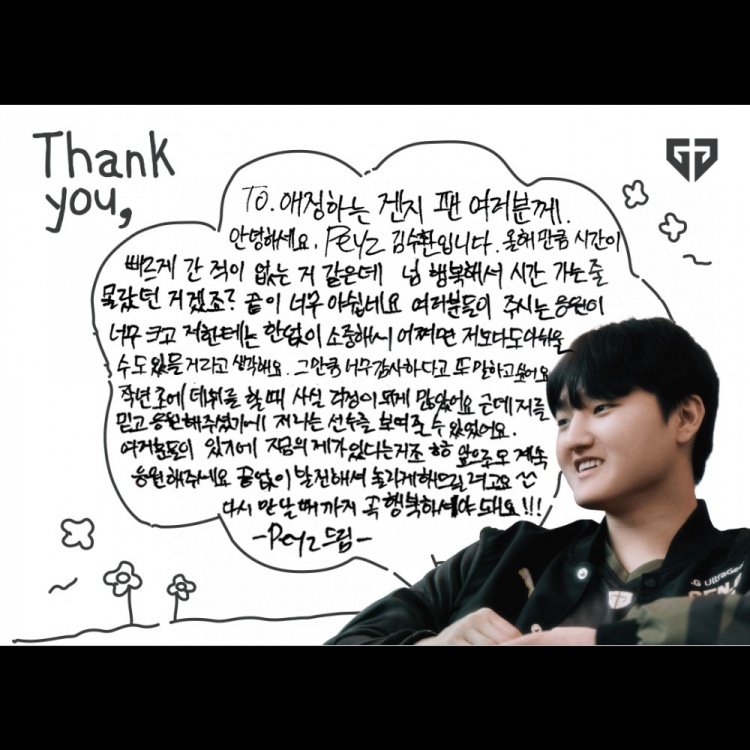 Thank
you,
To. 애정하는 젠지 팬 여러분께.
안녕하세요. Peyz 김수환입니다. 올해만큼 시간이
빠르게 간 적이 없는 거 같은데 넘 행복해서 시간 가는줄
몰랐던 거겠죠? 끝이 너무 아쉽네요 여러분들이 주시는 응원이
너무 크고 저한테는 한없이 소중해서 어쩌면 저보다도 아쉬울
수도 있을거라고 생각해요. 그만큼 너무 감사하다고 또 말하고 싶어요
작년 초에 데뷔를 할 때 사실 걱정이 되게 많았어요 근데 저를
믿고 응원해주셨기에 저라는 선수를 보여줄 수 있었어요.
여러분들이 있기에 지금의 제가 있다는거죠 ㅎㅎ 앞으로도 계속
응원해주세요 끝없이 발전해서 놀라게해드릴려고요
다시 만날 때까지 꼭 행복하셔야 돼요!!!
-Peyz드림-
UltraGear
GEN.G